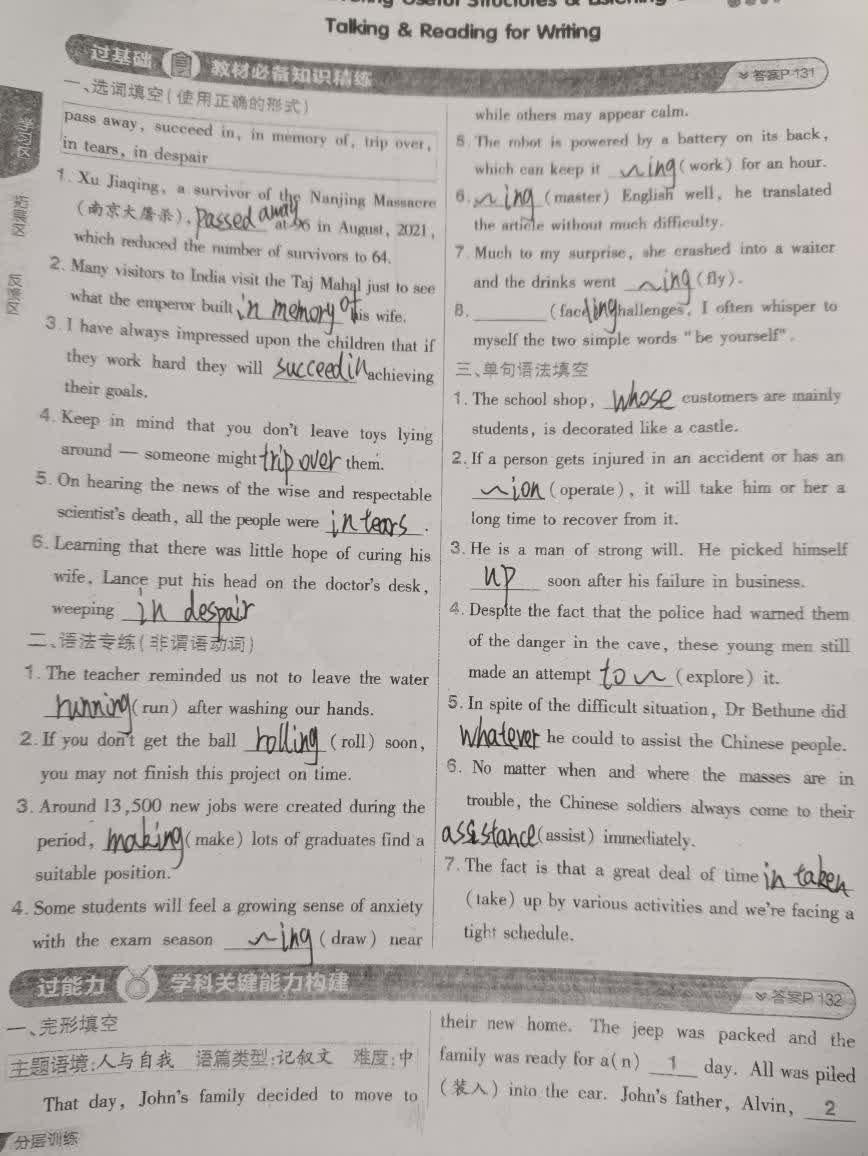 Talking & Reading for Writing
过基础 教材必备知识精练
答案P 131
学习区
拓展区
反馈区
一、选词填空(使用正确的形式)
pass away, succeed in, in memory of, trip over,
in tears, in despair
1. Xu Jiaqing, a survivor of the Nanjing Massacre
(南京大屠杀), passed away at 96 in August, 2021,
which reduced the number of survivors to 64.
2. Many visitors to India visit the Taj Mahal just to see
what the emperor built in memory of his wife.
3. I have always impressed upon the children that if
they work hard they will succeed in achieving
their goals.
4. Keep in mind that you don't leave toys lying
around — someone might trip over them.
5. On hearing the news of the wise and respectable
scientist's death, all the people were in tears.
6. Learning that there was little hope of curing his
wife, Lance put his head on the doctor's desk,
weeping in despair
二、语法专练(非谓语动词)
1. The teacher reminded us not to leave the water
running (run) after washing our hands.
2. If you don't get the ball rolling (roll) soon,
you may not finish this project on time.
3. Around 13,500 new jobs were created during the
period, making (make) lots of graduates find a
suitable position.
4. Some students will feel a growing sense of anxiety
with the exam season ~ing (draw) near
while others may appear calm.
5. The robot is powered by a battery on its back,
which can keep it ~ing (work) for an hour.
6. ~ing (master) English well, he translated
the article without much difficulty.
7. Much to my surprise, she crashed into a waiter
and the drinks went ~ing (fly).
8. ________ (face) ing challenges, I often whisper to
myself the two simple words "be yourself".
三、单句语法填空
1. The school shop, whose customers are mainly
students, is decorated like a castle.
2. If a person gets injured in an accident or has an
~ion (operate), it will take him or her a
long time to recover from it.
3. He is a man of strong will. He picked himself
up soon after his failure in business.
4. Despite the fact that the police had warned them
of the danger in the cave, these young men still
made an attempt to ~ (explore) it.
5. In spite of the difficult situation, Dr Bethune did
whatever he could to assist the Chinese people.
6. No matter when and where the masses are in
trouble, the Chinese soldiers always come to their
assistance (assist) immediately.
7. The fact is that a great deal of time in taken
(take) up by various activities and we're facing a
tight schedule.
过能力 学科关键能力构建
答案P 132
一、完形填空
主题语境:人与自我 语篇类型:记叙文 难度:中
That day, John's family decided to move to
their new home. The jeep was packed and the
family was ready for a(n) 1 day. All was piled
(装入) into the car. John's father, Alvin, 2
分层训练